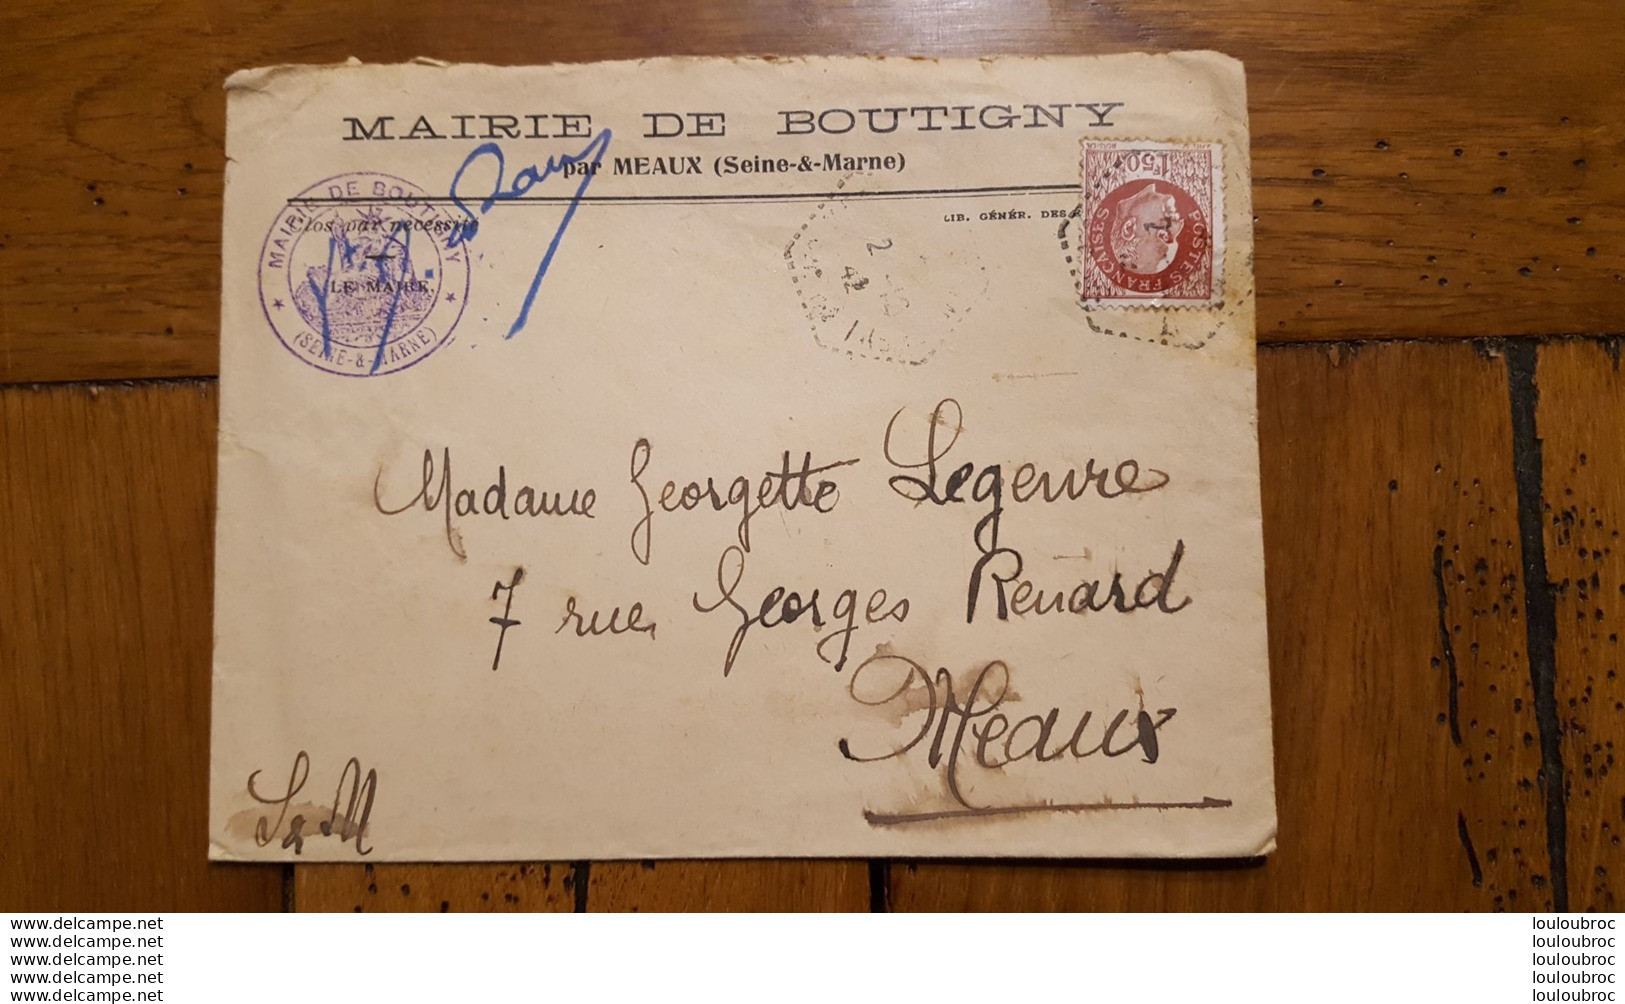 MAIRIE DE BOUTIGNY
par MEAUX (Seine-&-Marne)
LIB. GÉNÉR. DES
MAIRIE DE BOUTIGNY
(SEINE-&-MARNE)
Clos par nécessité
LE MAIRE.
2
42
1F50
POSTES FRANÇAISES
Madame Georgette Legenvre
7 rue Georges Renard
Meaux
S & M
www.delcampe.net
www.delcampe.net
www.delcampe.net
www.delcampe.net
www.delcampe.net
louloubroc
louloubroc
louloubroc
louloubroc
louloubroc